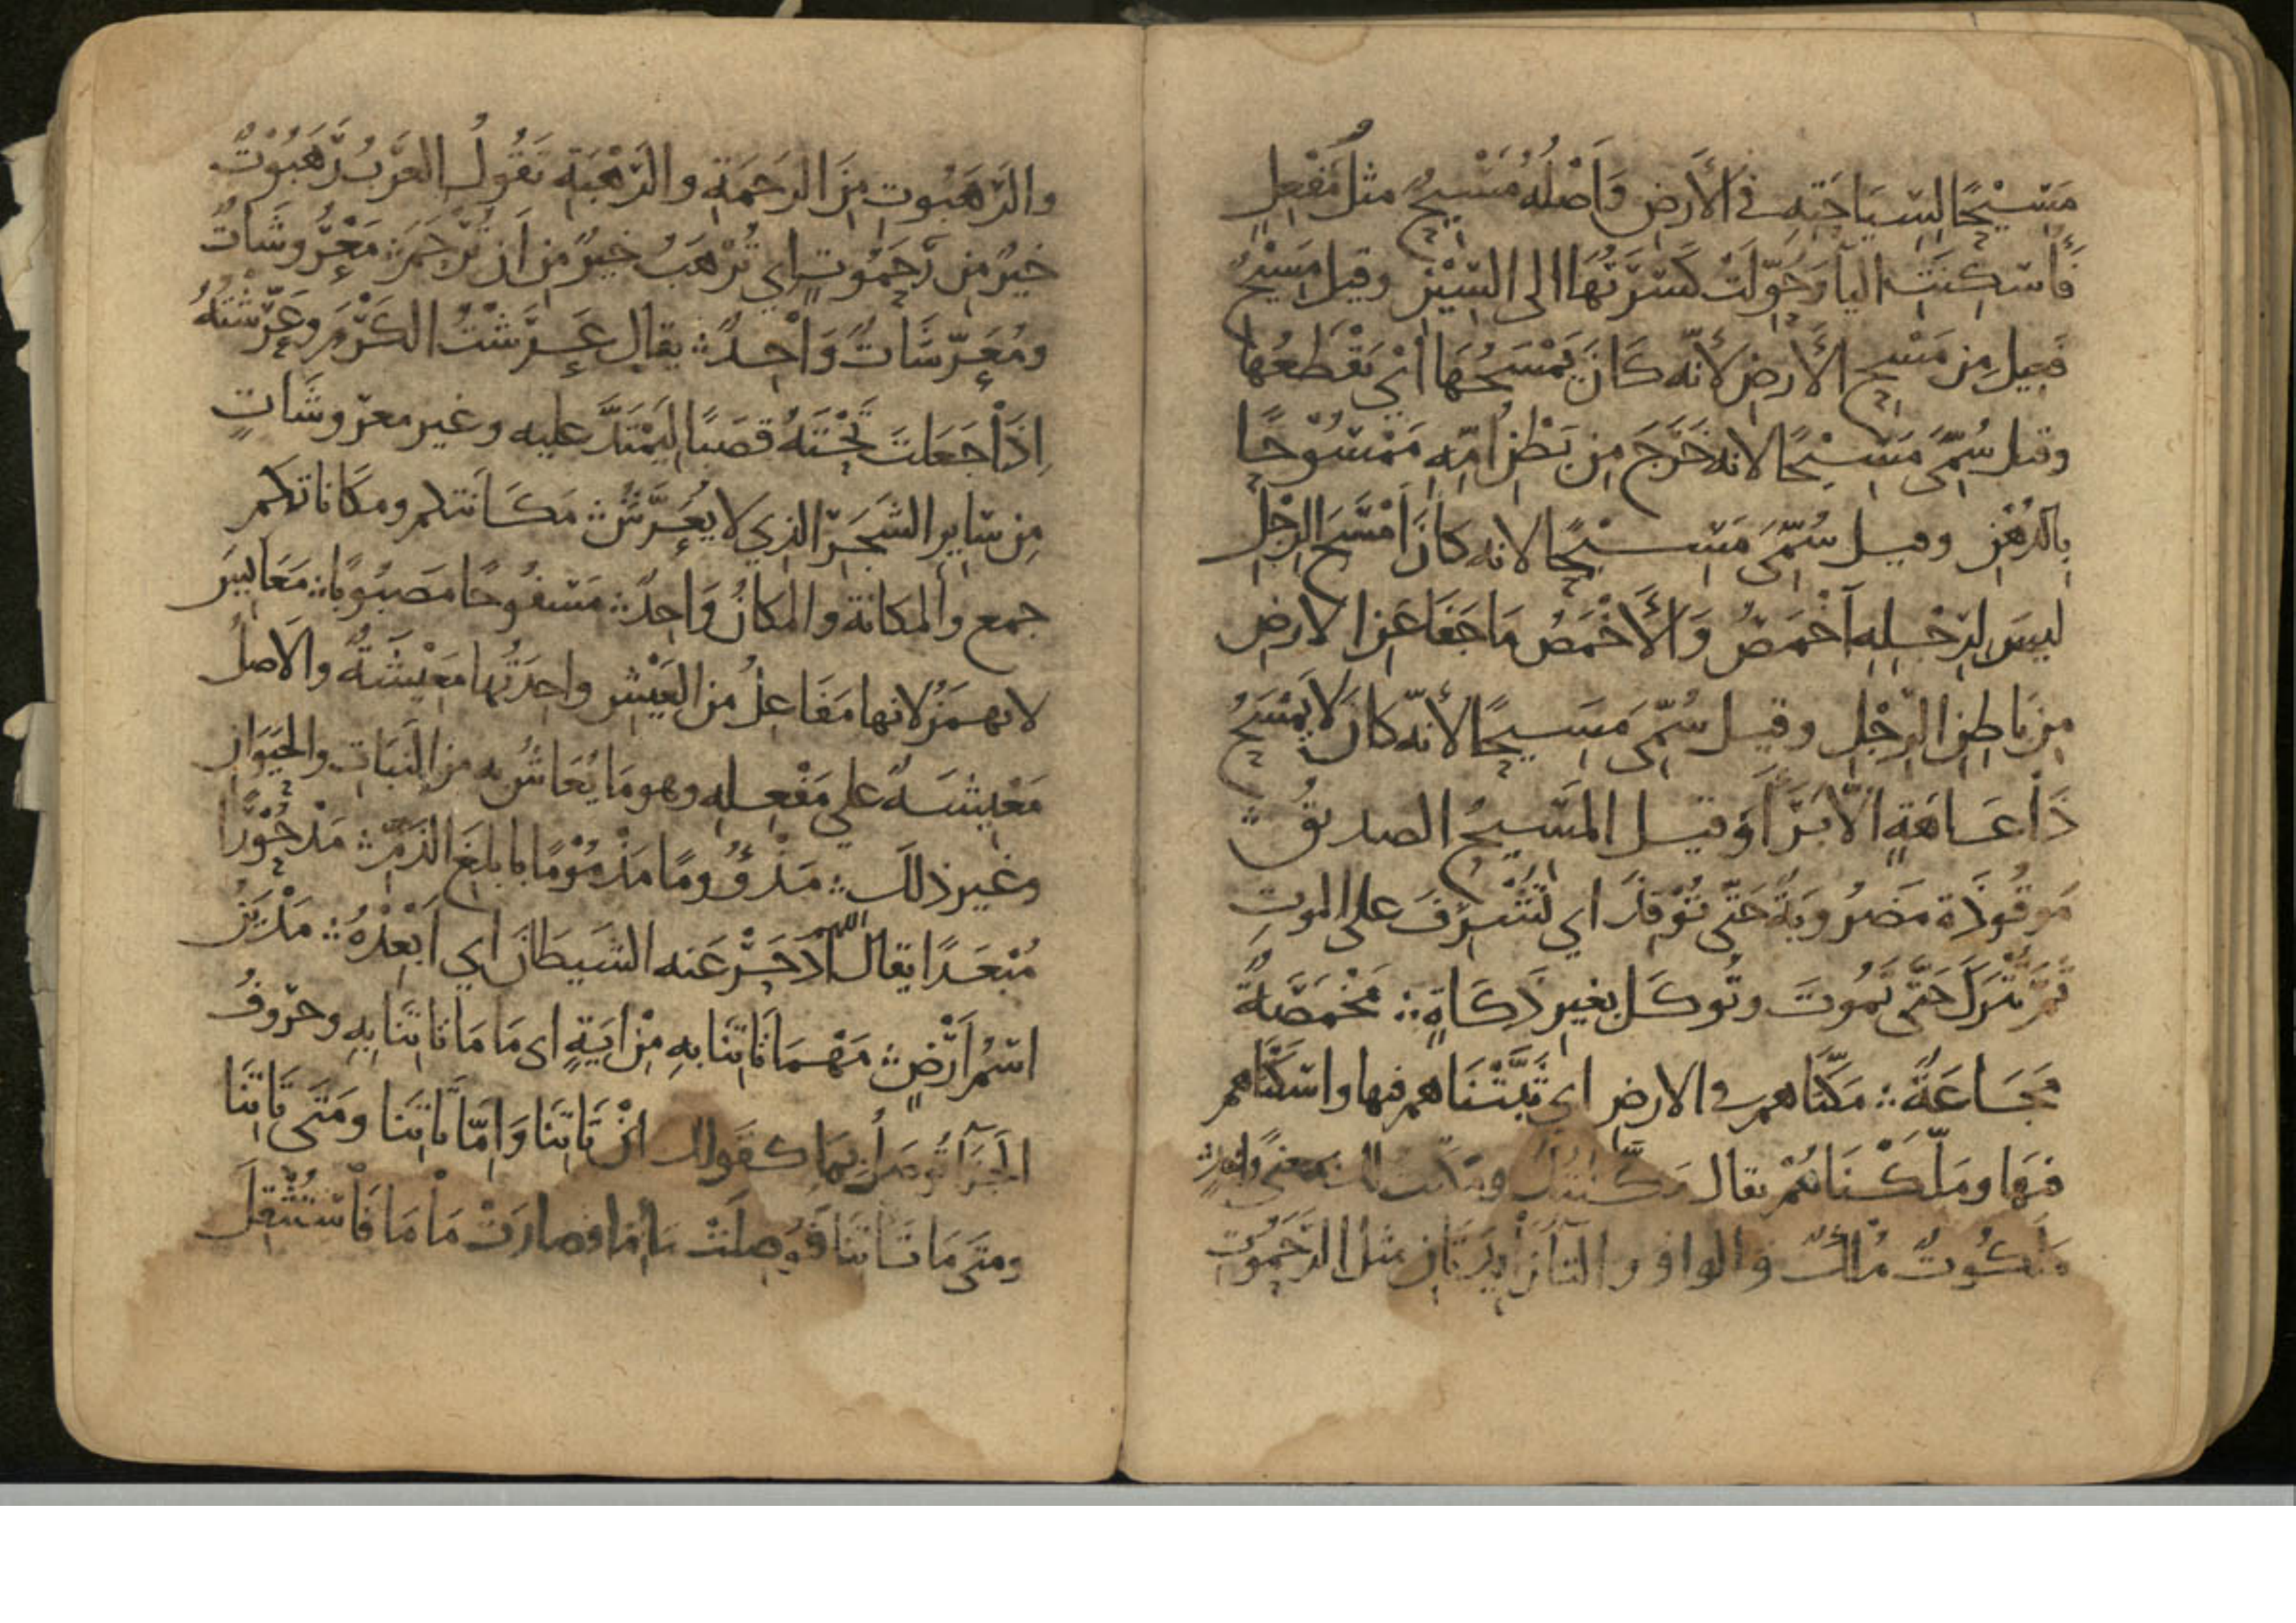 مَسِيْحًا لِسِيَاحَتِهِ في الأَرضِ وَأَصْلُهُ مَسْيِحٌ مثلُ مَفْعِلٍ
فَأُسْكِنَتِ اليآ وَحُوِّلَتْ كَسْرَتُهَا الى السِّيْنِ وقيل مَسِيْحٌ
فَعِيل مِن مَسْحِ الأَرضِ لأَنّه كَانَ يَمْسَحُهَا أيْ يَقْطَعُها
وقيل سُمِّيَ مَسِيْحًا لانه خَرَجَ مِن بَطْنِ أُمِّهِ مَمْسُوْحًا
بِالدُهْنِ وقيل سُمِّيَ مَسِيْحًا لانه كانَ أَمْسَحَ الرِجْلِ
ليسَ لِرِجْلِهِ أَخْمَصٌ وَالأَخْمَصُ مَا جَفَا عَنِ الارضِ
مِن بَاطِنِ الرِّجْلِ وقيل سُمِّيَ مَسِيحًا لأنّه كانَ لا يَمْسَحُ
ذَا عَاهَةٍ الّا بَرَأَ وَقيل المَسِيحُ الصديقُ ∴
مَوقُوذَة مَضرُوبَةٌ حَتّى تُوْقَذَ اي تُشْرِفَ على الموتِ
ثُمَّ تُتْرَكَ حَتَّى تَمُوتَ وتُوكَل بِغيرِ ذَكَاةٍ ∴ مَخْمَصَةٌ
مَجَاعَةٌ ∴ مَكّنّاهم في الارضِ اي ثَبَّتْنَاهم فيها واسْكَنَّاهم
فيهَا ومَلّكْنَاهُمْ يقال مَكَّنْتُكَ ومَكّنتُ لك بمعنًى واحدٍ
مَلَكُوتٌ مُلْكٌ والواو والتآ زَايِدَتَانِ مثل الرَّحَمُوتِ
والرَهَبُوتِ مِنَ الرَحمَةِ والرَهْبَةِ تَقُولُ العَرَبُ رَهَبُوْتٌ
خيرٌ مِن رَحَمُوتٍ اي تُرْهَبُ خيرٌ مِن ان تُرْحَمَ ∴ مَعْرُوشَاتٌ
ومُعَرَّشَاتٌ وَاحِدٌ ∴ يقال عَرَشْتُ الكَرْمَ وعَرَّشْتُهُ
اِذَا جَعَلتَ تَحْتَهُ قصَبًا لِيَمْتَدَّ عليه وغير معروشَاتٍ
مِن سَايرِ الشَجَرِ الذي لا يُعَرَّشُ ∴ مَكَانتكم ومكَاناتكم
جمع والمكانة والمكانُ وَاحِدٌ ∴ مَسْفُوحًا مَصبُوبًا ∴ مَعَايِشَ
لا تهمَزُ لانها مَفَاعِلُ من العَيْشِ واحِدَتُها مَعِيْشَةٌ والاَصلُ
مَعْيِشَة على مَفْعِلِه وهو مَا يُعَاشُ به من النَبَاتِ والحَيَوَانِ
وغير ذلك ∴ مَذْؤُومًا مَذْمُوْمًا بابلغَ الذَمِّ ∴ مَدْحُوْرًا
مُبْعَدًا يقال اللهم ادْحَرْ عَنه الشَيطَانَ اي اَبْعِدْهُ ∴ مَدْيَنُ
اسْمُ اَرْضٍ ∴ مَهْمَا تَاتِنَا بهِ مِنْ ايَةٍ اى مَا مَا تَاتِنَا بِهِ وحرُوفُ
الجَزآ تُوصَلُ بِمَا كقولك اِنْ تَاتِنَا وَاِمّا تَاتِنَا ومَتَى تَاتِنَا
ومتَى مَا تَاتِنَا فَوُصِلَتْ مَا بِمَا فصارَتْ مَا مَا فَاسْتُثْقِلَ